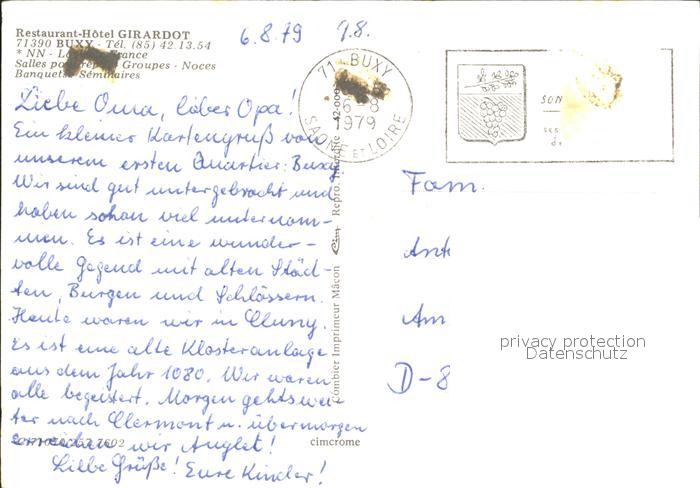 Restaurant-Hôtel GIRARDOT
71390 BUXY - Tél. (85) 42.13.54
* NN - France
Salles Groupes - Noces
Banquets Séminaires
6.8.79 9.8.
71 BUXY
6-8
1979
SAONE ET LOIRE
SON
Liebe Oma, lieber Opa!
Ein kleiner Kartengruß von
unserem ersten Quartier: Buxy
Wir sind gut untergebracht und
haben schon viel unternom-
men. Es ist eine wunder-
volle Gegend mit alten Städ-
ten, Burgen und Schlössern.
Heute waren wir in Cluny.
Es ist eine alte Klosteranlage
aus dem Jahr 1080. Wir waren
alle begeistert. Morgen gehts wei-
ter nach Clermont u. übermorgen
erreichen wir Anglet!
Liebe Grüße! Eure Kinder!
Combier Imprimeur Mâcon
Repro. Interdite
cimcrome
Fam.
Am
D-8
privacy protection
Datenschutz